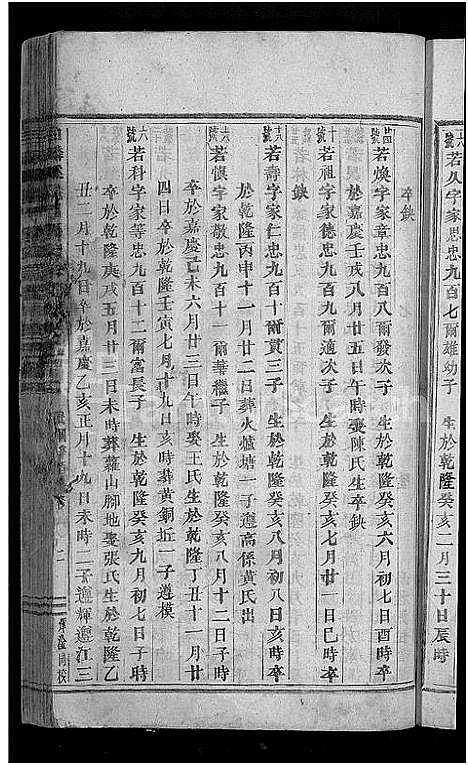 六號若人字家思忠九百七爾雄幼子 生於乾隆癸亥二月三十日辰時
卒缺
四號若煥字家章忠九百八爾發次子 生於乾隆癸亥六月初七日酉時卒
於嘉慶壬戌八月廿五日午時娶陳氏生卒缺
十號若祖字家德忠九百九爾適次子 生於乾隆癸亥七月廿一日巳時卒
缺
六號若壽字家仁忠九百十爾貫三子 生於乾隆癸亥八月初八日亥時卒
於乾隆丙申十一月廿二日葬火爐塘一子遵高係黃氏出
六號若懷字家敬忠九百十一爾華繼子 生於乾隆癸亥八月十二日子時
卒於嘉慶己未六月廿三日午時娶王氏生於乾隆丁丑十一月廿
四日卒於乾隆壬寅七月十九日亥時葬黃銅坵一子遵模
六號若科字家華忠九百十二爾富長子 生於乾隆癸亥九月初七日子時
卒於乾隆庚戌五月廿三日未時葬蘿山腳地娶張氏生於乾隆乙
丑二月十九日卒於嘉慶乙亥正月十九日未時二子遵輝遵江三